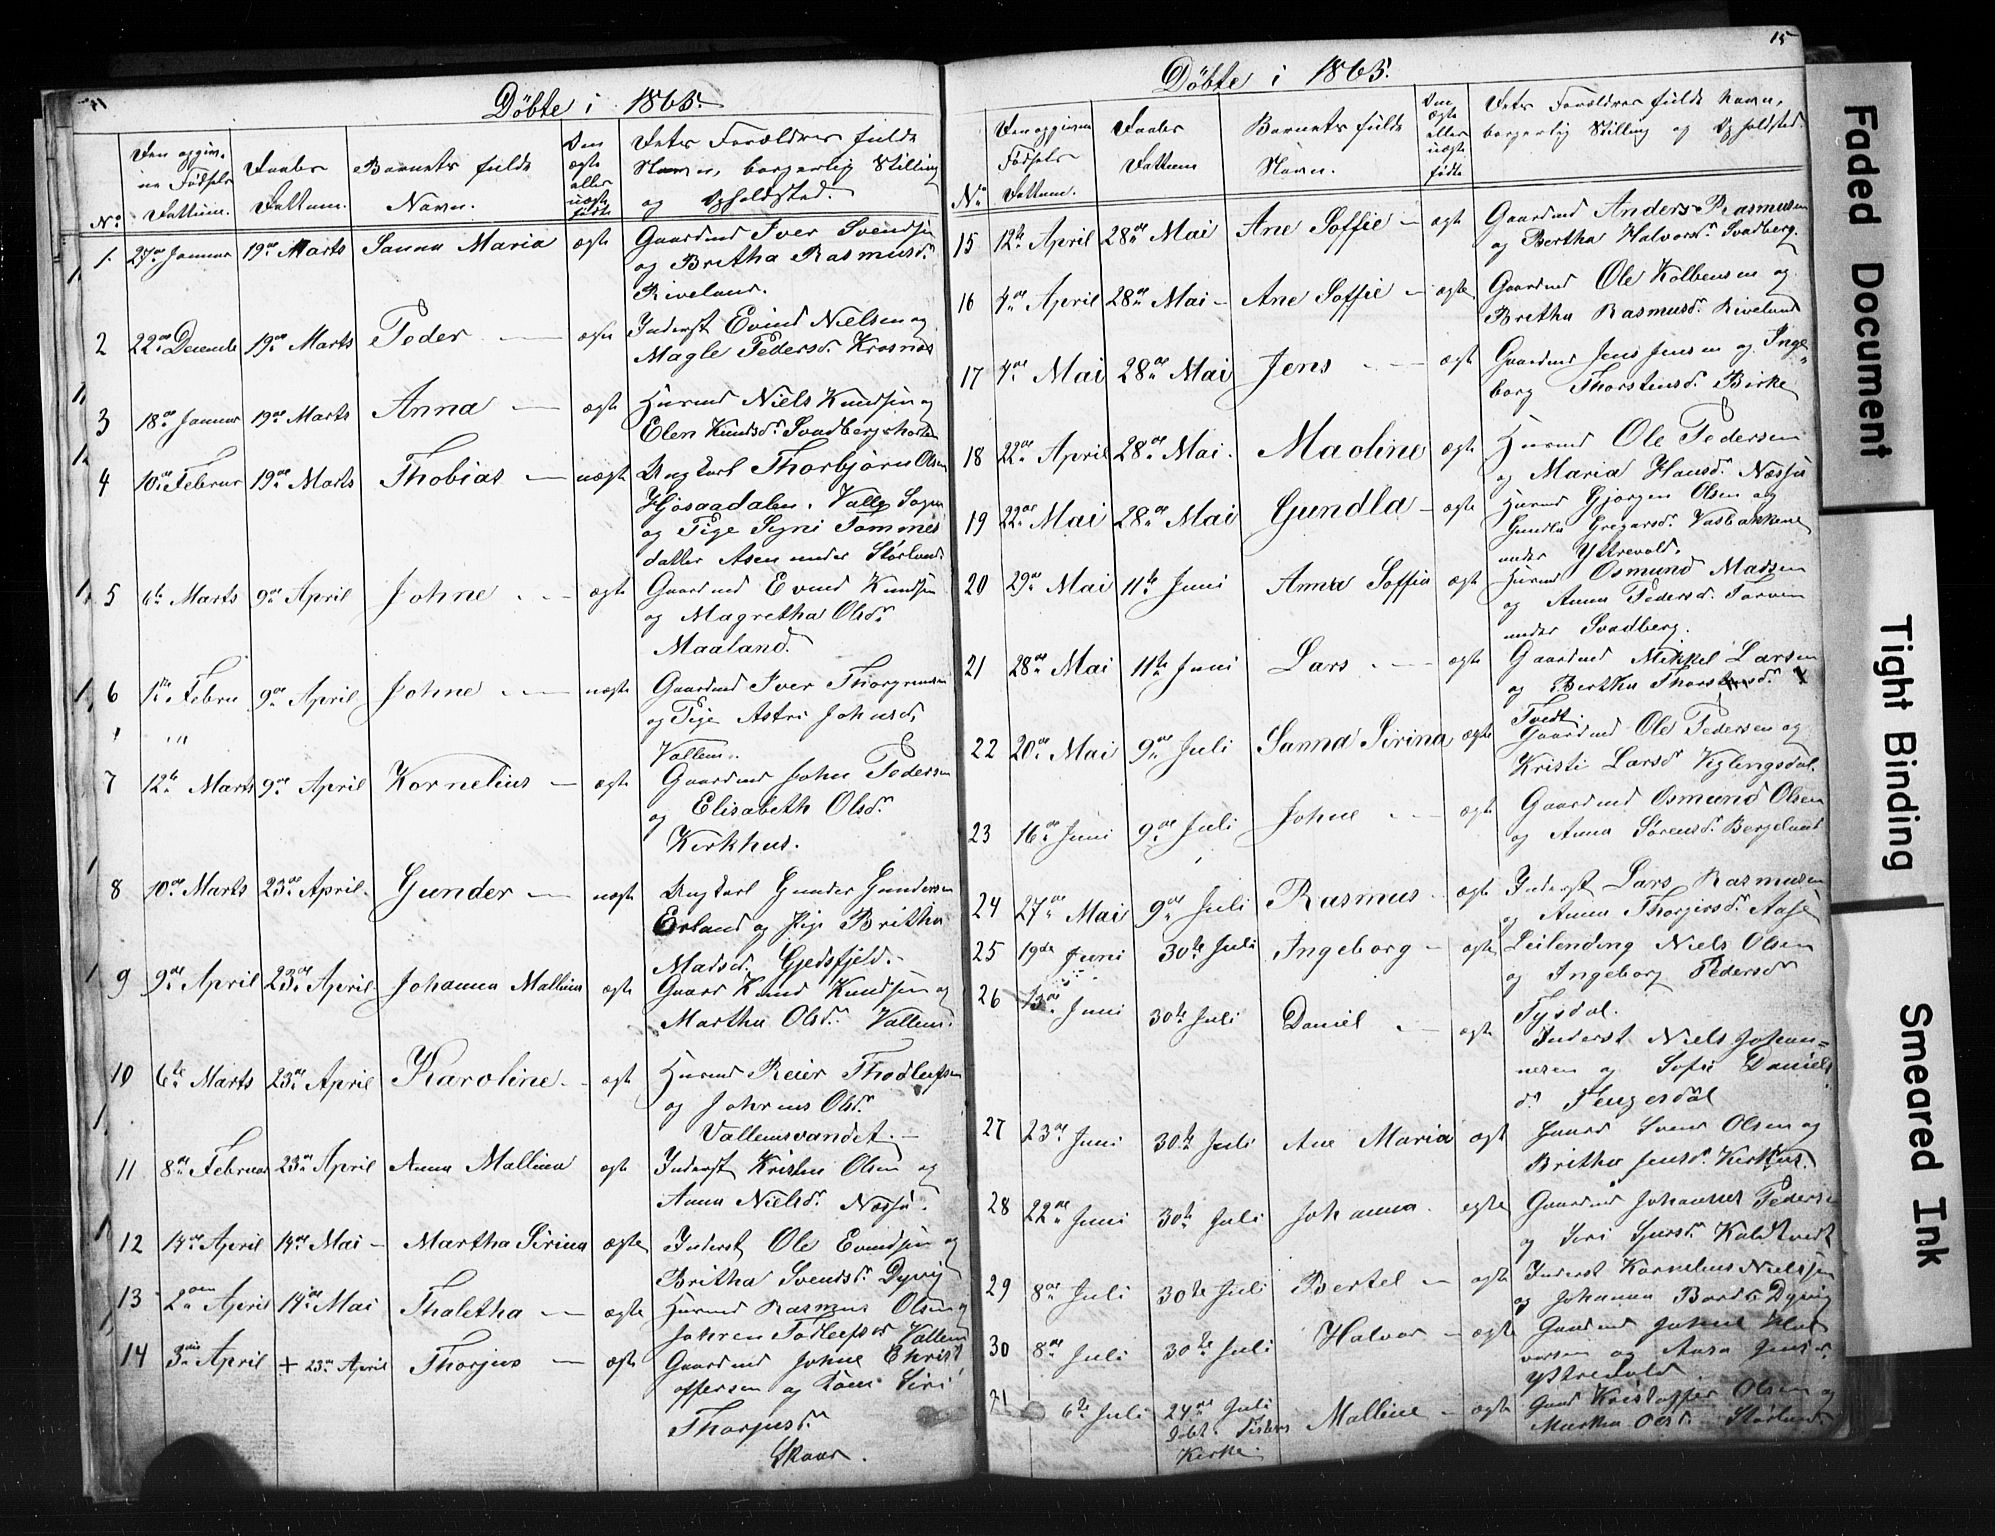 Döbte i 1865.
Den opgiv,
ne Fødsels
Dattum.
Daabs
Dattum.
Barnets fulde
Navn.
Den
ægte
eller
uægte
fødte
Dets Forældres fulde
Navn, borgerlig Stilling
og Opholdsted.
No
1. 27de Januar 19de Marts Sanna Maria ægte Gaardmd Iver Svendsen
og Britha Rasmusdr
Riveland.
2 22de Decembr 19de Marts Peder — ægte Inderst Evind Nielsen og
Magle Pedersdr Krosnæs
3 18de Januar 19de Marts Anna — ægte Husmd Niels Knudsen og
Elen Knudsdr Svadbergsholm
4 10de Februar 19de Marts Thobias — uægte Ungkarl Thorbjörn Olsen
Hjösaadalen. Valle Sogn
og Pige Signi Tommes
datter Asen under Störland.
5 6te Marts 9de April Johne — ægte Gaardmd Evind Knudsen
og Magretha Olsdr
Maaland.
6 1ste Febru 9de April Johne — uægte Gaardmd Iver Thorgrimsen
og Pige Astri Johnsdr
Vallem.
7 12te Marts 9de April Kornelius — ægte Gaardmd John Pedersen
og Elisabeth Olsdr
Kirkhus.
8 10de Marts 23de April. Gunder — uægte Ungkarl Gunder Gundersen
Erland og Pige Britha
Madsd. Gjedsfjeld.
9 9de April 23de April Johanna Mallina ægte Gaard Knud Knudsen og
Martha Olsdr Vallem.
10 6te Marts 23de April Karoline — ægte Husmd Reier Thodleefsen
og Johrens Olsdr
Vallemsvandet. —
11 8de Februar 23de April Anna Mallina ægte Inderst Kristen Olsen og
Anna Nielsdr Næssa.
12 14de April 14de Mai — Martha Sirina ægte Inderst Ole Evindsen og
Britha Svendsdr Dyvig
13 2den April 14de Mai Thaletha — ægte Husmd Rasmus Olsen og
Johren Todleefsdr Vallem
14 3die April + 23de April Thorjus — ægte Gaardmd Johne Christ
offersen og Kone Siri
Thorjusdr
Skaar.
15
Döbte i 1865.
No
Den opgivne
Fødsels
Dattum.
Daabs
Dattum
Barnets fulde
Navn.
Den
ægte
eller
uægte
fødte
Dets Forældres fulde Navn,
borgerlig Stilling og Opholdsted.
15 12te April 28de Mai Ane Soffie — ægte Gaardmd Anders Rasmusen
og Bertha Halvorsdr Svadberg.
16 4de April 28de Mai — Ane Soffie — ægte Gaardmd Ole Kolbensen og
Britha Rasmusdr Riveland
17 4de Mai 28de Mai Jens — ægte Gaardmd Jens Jensen og Inge
borg Thorstensdr Birke
18 22de April 28de Mai. Maoline ægte Husmd Ole Pedersen
og Maria Hansdr Næssa
19 22de Mai 28de Mai Gundla — ægte Husmd Gjörgen Olsen og
Gundla Gregarsdr Vasbakkene
under Ytrevold.
20 29de Mai 11te Juni Anna Soffia ægte Husmd Osmund Madsen
og Anna Pedersdr Torven
under Svadberg.
21 28de Mai 11te Juni Lars — ægte Gaardmd Mikkel Larsen
og Bertha Thorstensdr
Tvedt
22 20de Mai 9de Juli Sanna Sirina ægte Gaardmd Ole Pedersen og
Kristi Larsd Viglengsdal.
23 16de Juni 9de Juli Johne — ægte Gaardmd Osmund Olsen
og Anna Sörensdr Bergeland
24 27de Mai 9de Juli Rasmus — ægte Inderst Lars Rasmusen
og Anna Thorgirsdr Aase
25 19de Juni 30te Juli Ingeborg — ægte Leilending Niels Olsen
og Ingeborg Pedersdr
Tysdal.
26 13de Juni 30te Juli Daniel — ægte Inderst Niels Johan=
nesen og Sofie Daniels
dr Tengesdal
27 23de Juni 30te Juli Ane Maria ægt Gaard Svend Olsen og
Britha Jensdr Kirkhus.
28 22de Juni 30te Juli Johanna. ægte Gaardmd Johannes Pedersen
og Siri Sjursdr Kaldtvedt
29 8de Juli 30te Juli Bertel — ægte Inderst Kornelius Nielssen
og Johanna Bardsdr Dyvig
30 8de Juli 30te Juli Halvor — ægte Gaardmd Johne Hal
vorsen og Jensdr
Ytrevold
31 6te Juli 24de Juli Malline — ægte Gaard Kristoffer Olsen og
Döbt i Fisters
Kirke.
Martha Olsd Störland
Faded Document
Tight Binding
Smeared Ink